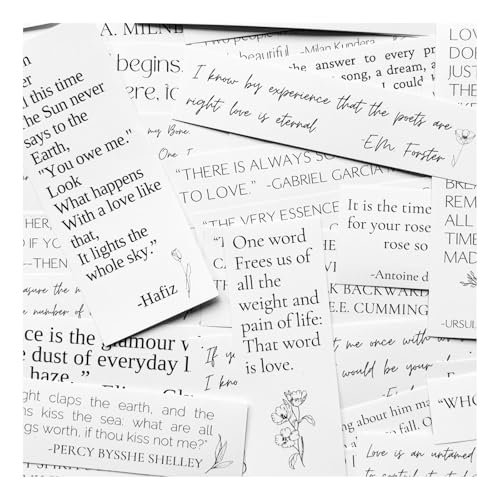 A. MILNE
Two people
beautiful. -Milan Kundera
begins.
the answer to every pr
song, a dream, a
I could l
I know by experience that the poets are
right love is eternal
EM Forster
LOV
DOE
JUST
THE
LIKE
this time
The Sun never
says to the
Earth,
"You owe me."
Look
What happens
With a love like
that,
It lights the
whole sky."
-Hafiz
my Bone
One
"THERE IS ALWAYS SO
TO LOVE." -GABRIEL GARCIA
"THE VERY ESSENCE
BREA
REM
ALL
TIME
MADE
-URSUL
It is the time
for your rose
rose so
-Antoine d
One word
Frees us of
all the
weight and
pain of life:
That word
is love.
BACKWARD
E.E. CUMMING
IF YOU
-THEN
asure the
the number of
ce is the glamour w
dust of everyday l
haze."
me once with
would be your
If
I know
ing about him ma
to fall. O
"WHO
ght claps the earth, and the
ns kiss the sea: what are all
gs worth, if thou kiss not me?"
-PERCY BYSSHE SHELLEY
Love is an untamed